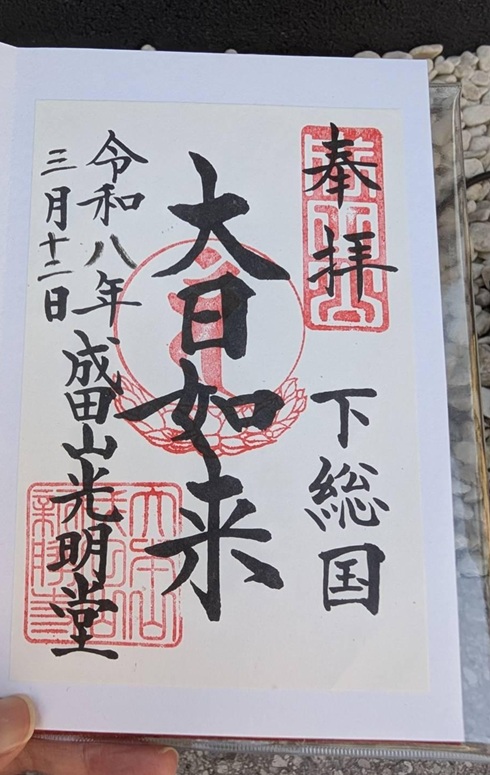 奉拝
下総国
大日如来
成田山光明堂
令和八年
三月十二日